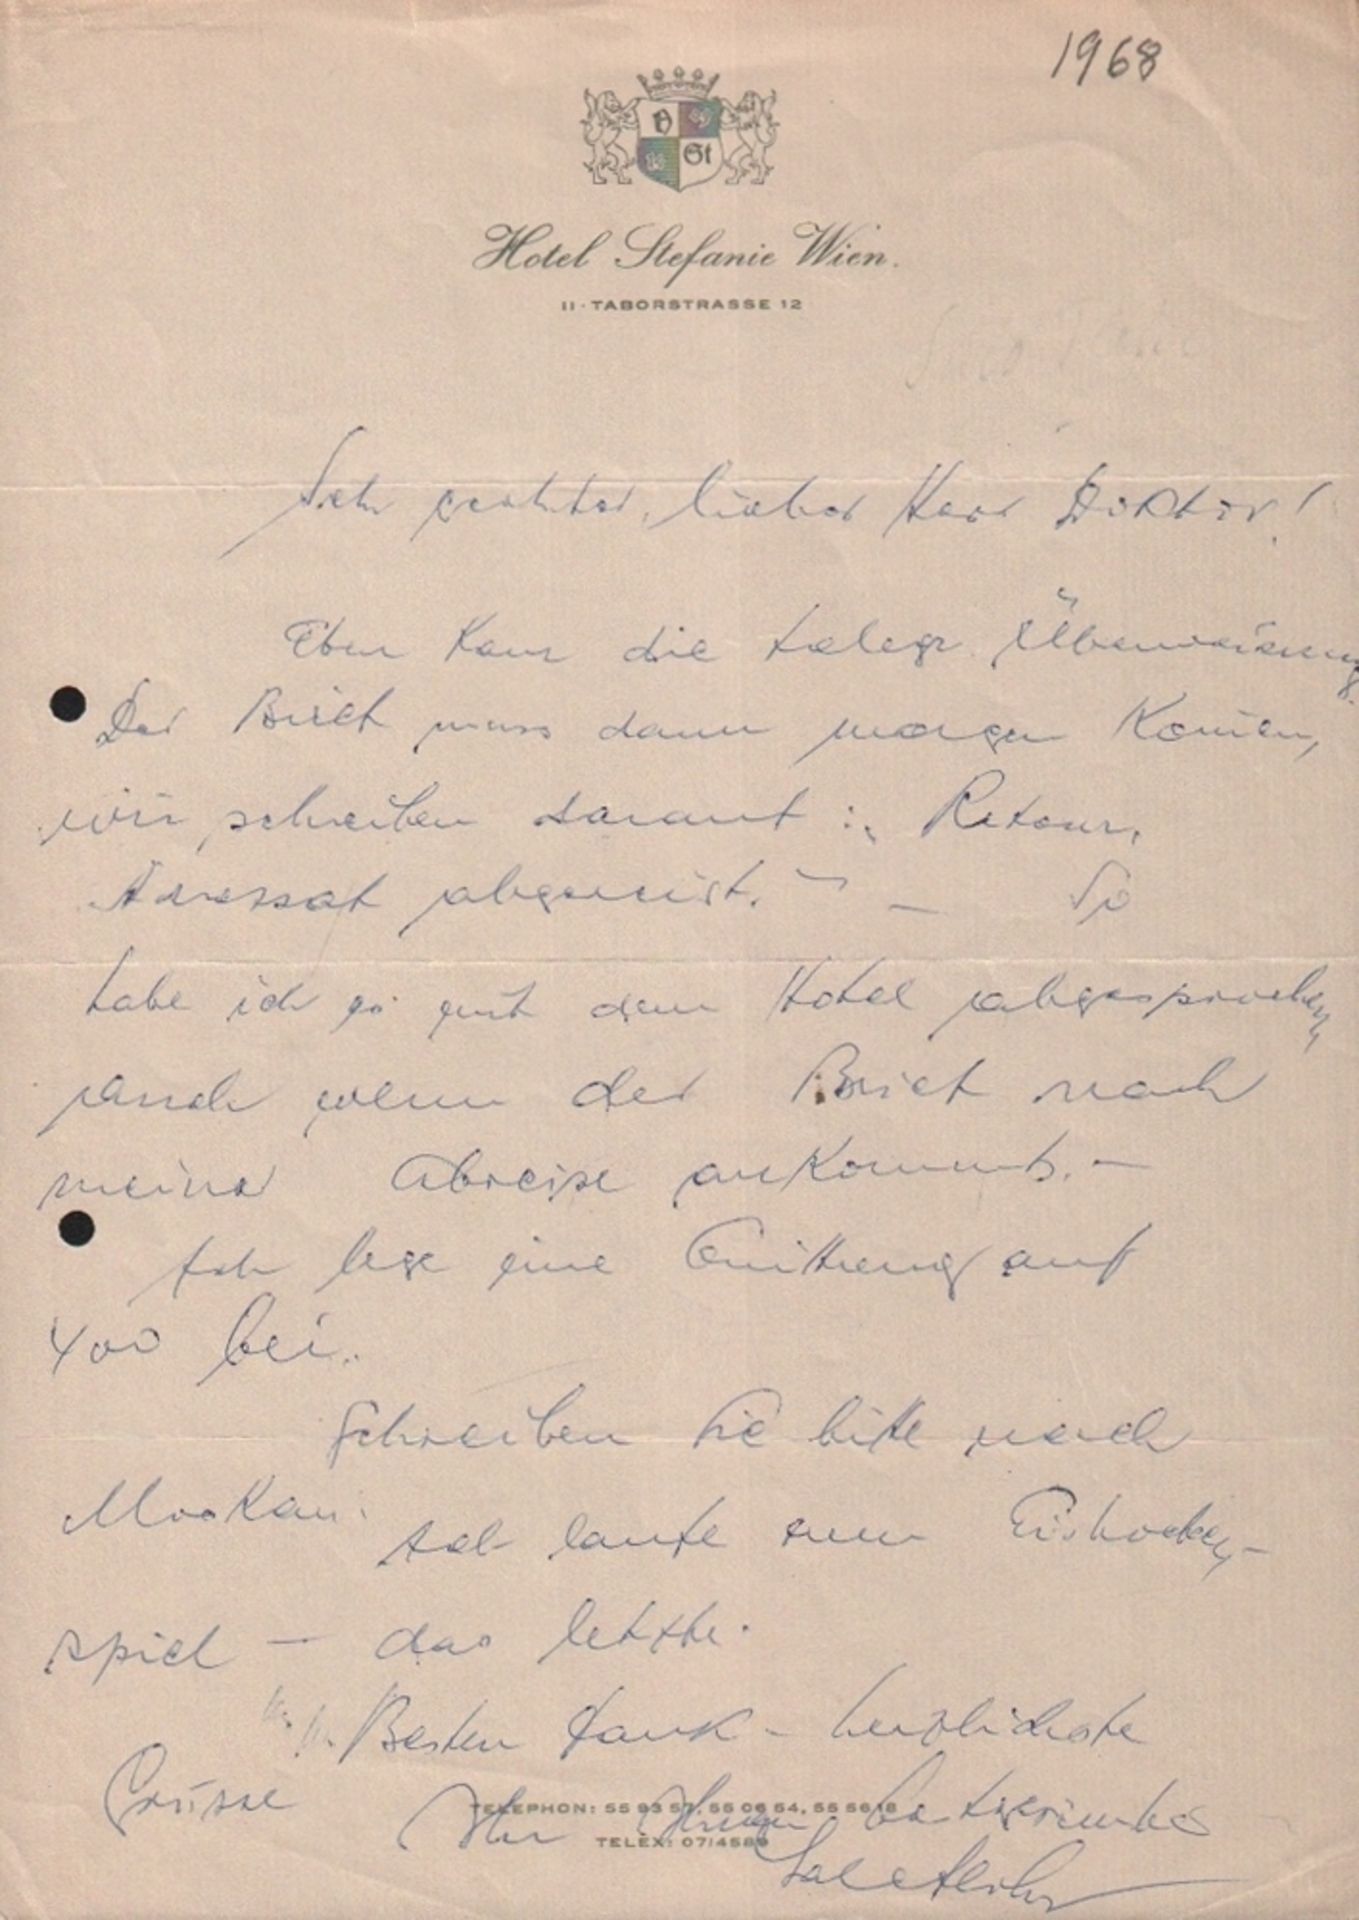 1968
Hotel Stefanie Wien.
II · TABORSTRASSE 12
Sehr geehrter, lieber Herr Doktor!
Eben kam die telegr. Überweisung.
Der Brief muss dann morgen kommen,
wir schreiben darauf: „Retour,
Adressat abgereist." — So
habe ich es mit dem Hotel abgesprochen,
auch wenn der Brief nach
meiner Abreise ankommt. —
Ich lege eine Quittung auf
400 bei.
Schreiben Sie bitte nach
Moskau. laufe zum Eishockey-
spiel — das letzte.
Besten Dank – herzlichste
Grüsse
Ihr Ihnen
TELEPHON: 55 93 57, 55 06 54, 55 56 18
TELEX: 07/4589